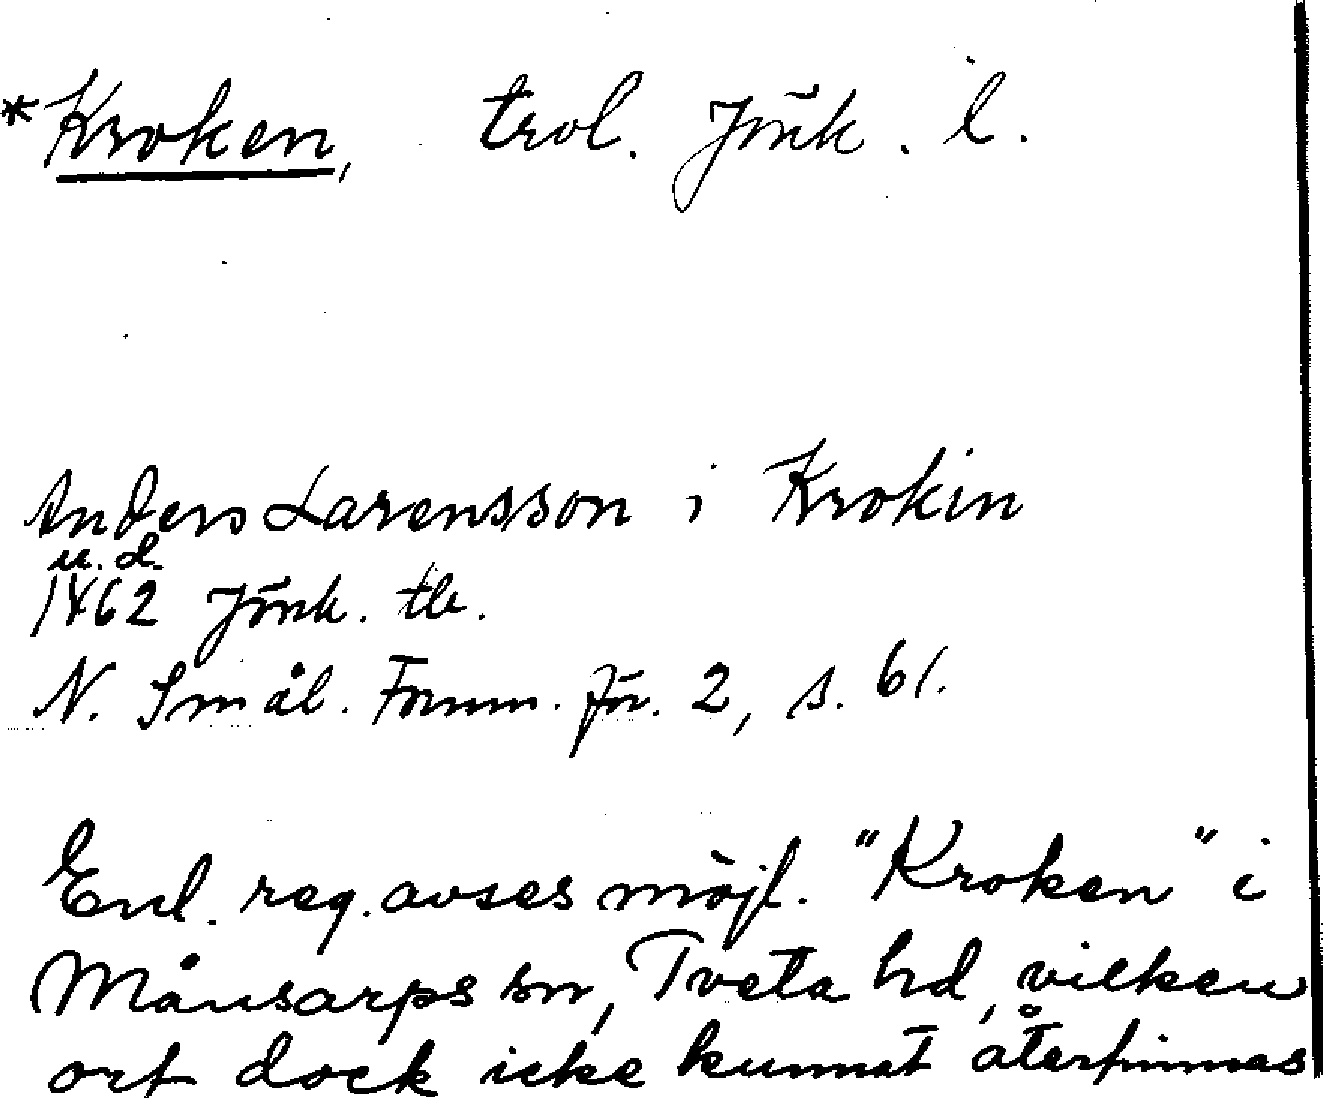 *Kroken, trol. Jönk. l.
Anders Larensson i Krokin
u.d.
1462 Jönk. tb.
N. Smål. Fornm. för. 2, s. 61.
Enl. reg. avses möjl. "Kroken" i
Månsarps sn, Tveta hd, vilken
ort dock icke kunnat återfinnas